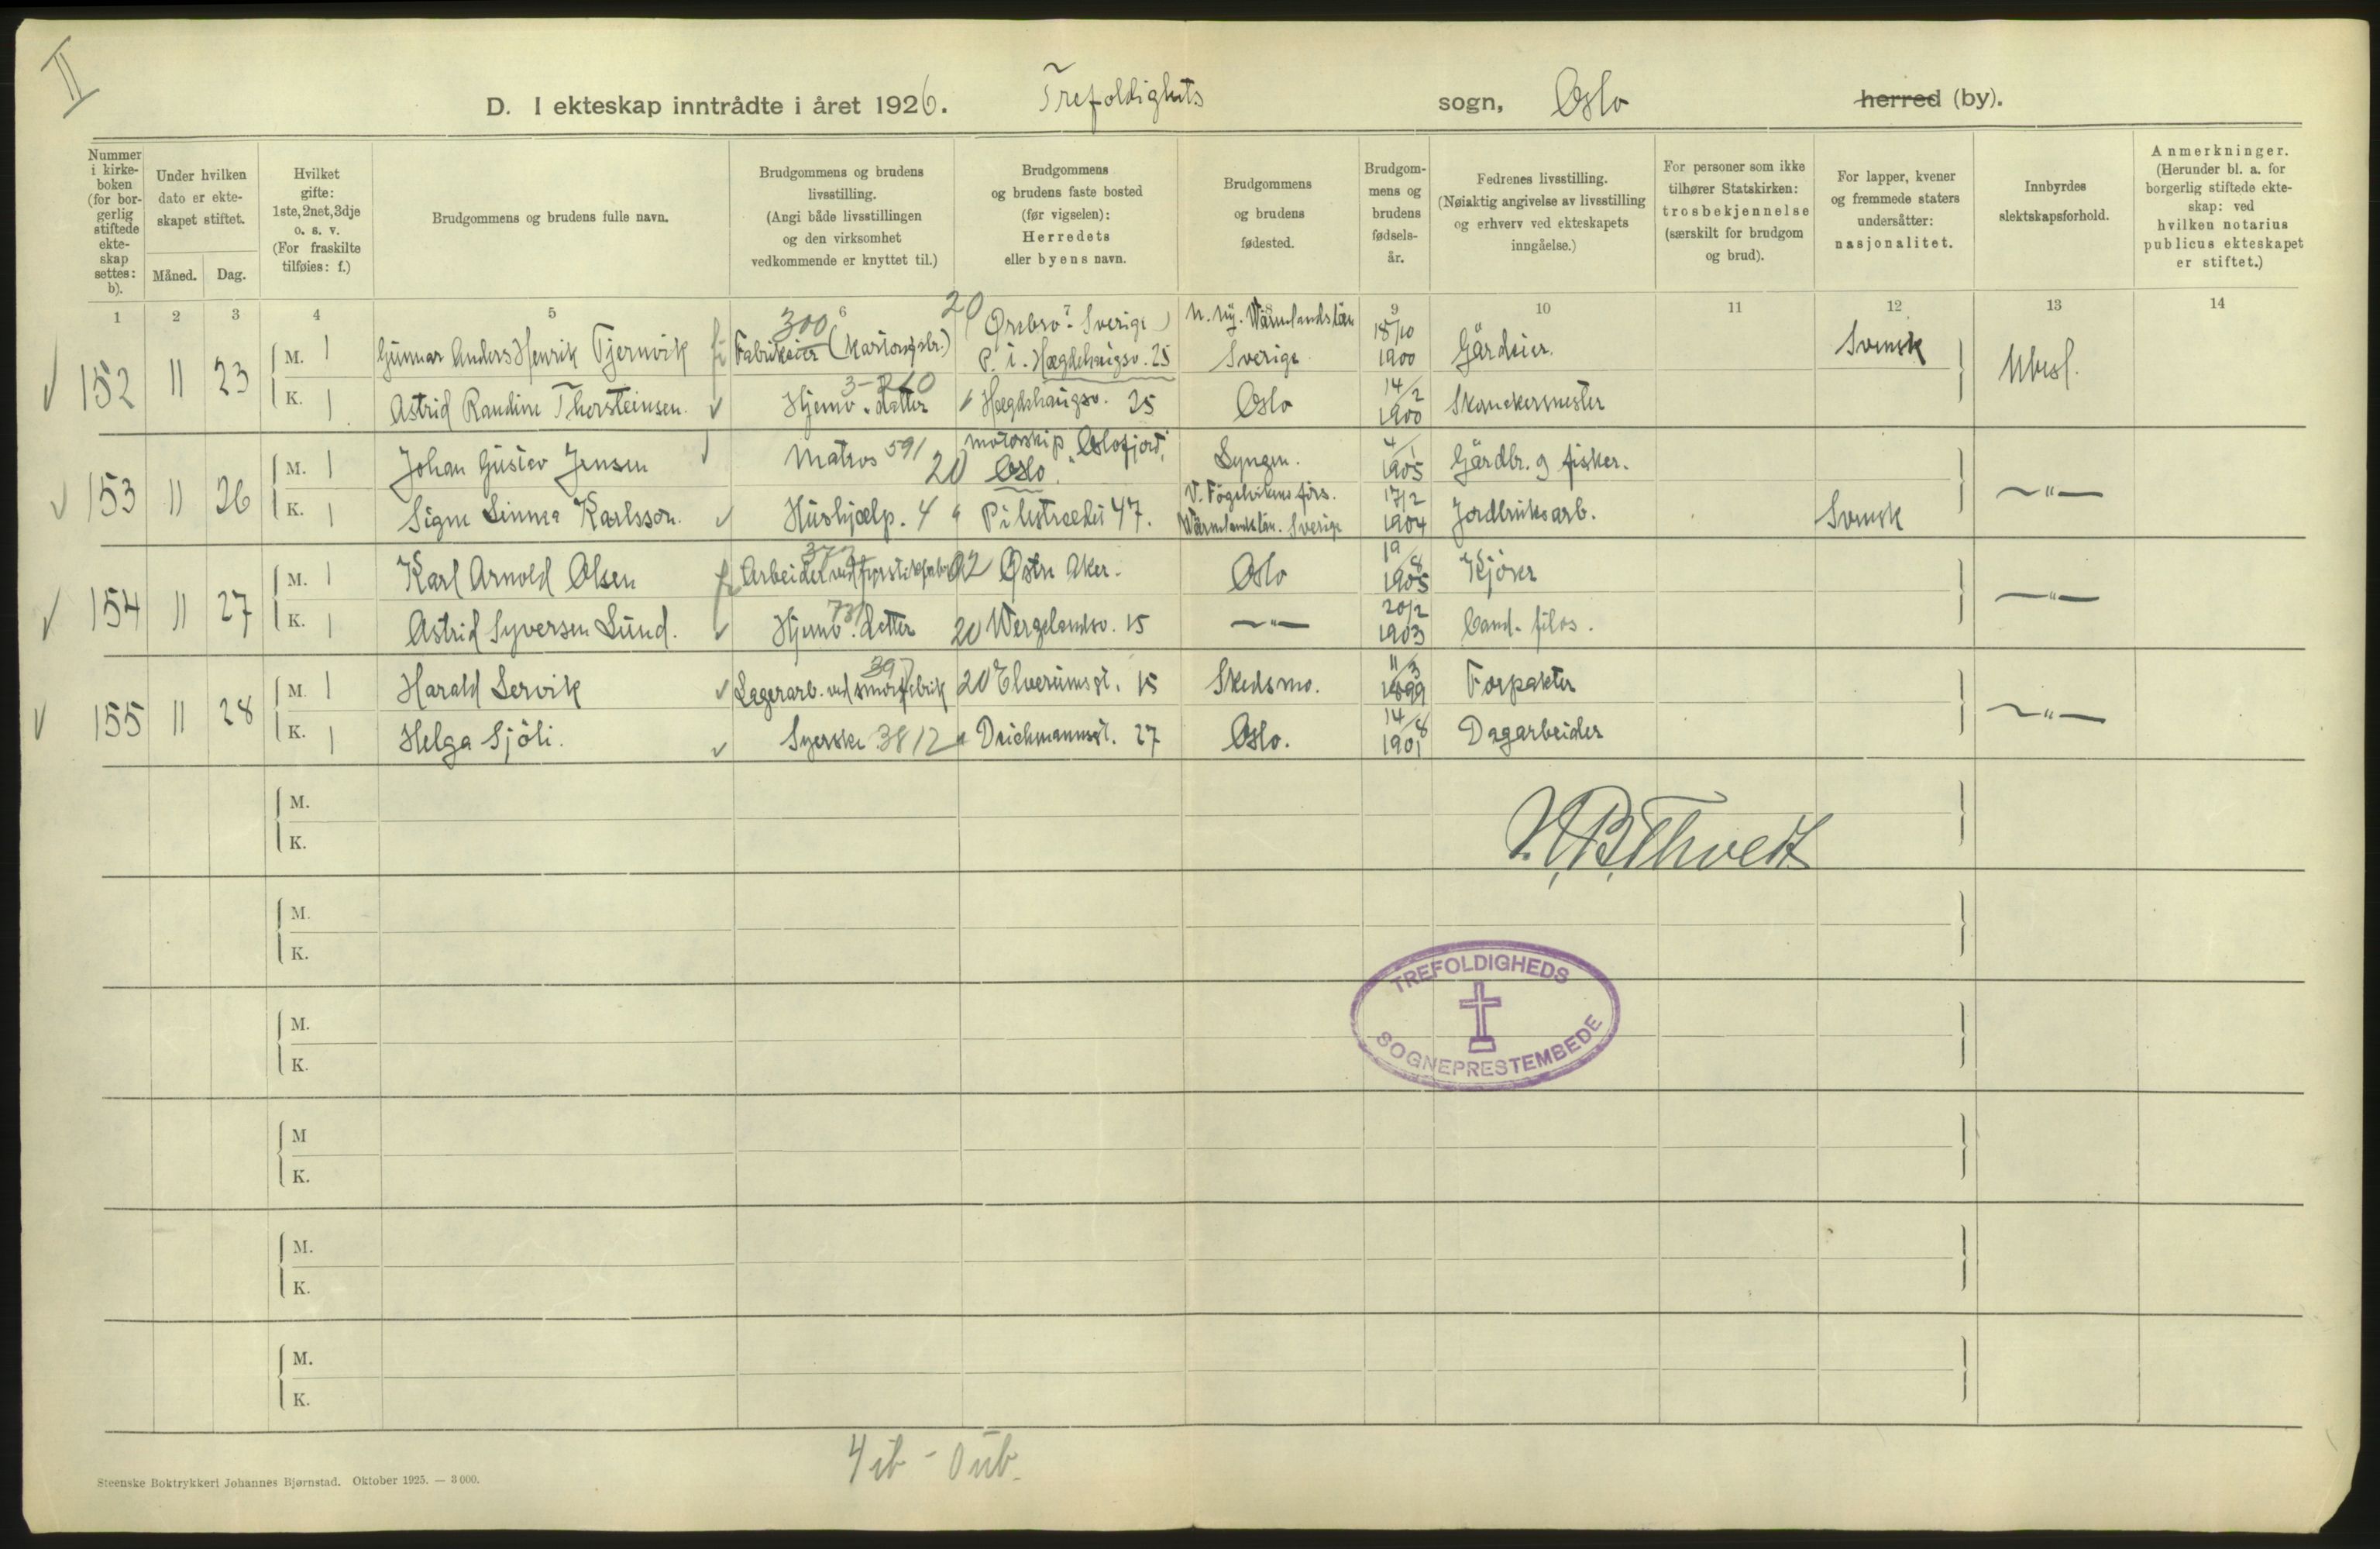 II
D. I ekteskap inntrådte i året 1926. Trefoldighets sogn, Oslo herred (by).
Nummer i kirke-boken (for bor-gerlig stiftede ekte-skap settes: b).
Under hvilken dato er ekte-skapet stiftet.
Måned. Dag.
Hvilket gifte: 1ste, 2net, 3dje o. s. v. (For fraskilte tilføies: f.)
Brudgommens og brudens fulle navn.
Brudgommens og brudens livsstilling. (Angi både livsstillingen og den virksomhet vedkommende er knyttet til.)
Brudgommens og brudens faste bosted (før vigselen): Herredets eller byens navn.
Brudgommens og brudens fødested.
Brudgom-mens og brudens fødsels-år.
Fedrenes livsstilling. (Nøiaktig angivelse av livsstilling og erhverv ved ekteskapets inngåelse.)
For personer som ikke tilhører Statskirken: trosbekjennelse (særskilt for brudgom og brud).
For lapper, kvener og fremmede staters undersåtter: nasjonalitet.
Innbyrdes slektskapsforhold.
Anmerkninger. (Herunder bl. a. for borgerlig stiftede ekte-skap: ved hvilken notarius publicus ekteskapet er stiftet.)
1 2 3 4 5 6 7 8 9 10 11 12 13 14
152 11 23 M. 1 Gunnar Anders Henrik Tjernvik Fabrikeier 300 20 (Örebro - Sverige) P. t. Hægdehaugsv. 25 N. Ny. Wärmlandslän Sverige 18/10 1900 Gårdeier. Svensk Ubesl.
K. 1 Astrid Randine Thorsteinsen. Hjemv. datter " Hægdehaugsv. 25 Oslo 14/2 1900 Skomakermester
153 11 26 M. 1 Johan Gustav Jensen Matros 591 20 motorskip "Oslofjord", Oslo. Lyngen. 4/1 1905 Gårdbr. og fisker. —"—
K. 1 Signe Linnea Karlsson. Hushjælp. 4 " Pilestrædet 47. Wärmlandslän. Sverige 17/2 1904 Jordbruksarb. Svensk
154 11 27 M. 1 Karl Arnold Olsen Arbeider ved fyrstikfabr. 02 Østre Aker. Oslo 19/8 1905 Kjører —"—
K. 1 Astrid Syversen Lund. Hjemv. datter 731 20 Wergelandsv. 15 —"— 20/2 1903 Cand. filos.
155 11 28 M. 1 Harald Lervik Lagerarb. ved smørfabrik 397 20 Elverumsgt. 15 Skedsmo. 11/3 1899 Forpakter —"—
K. 1 Helga Sjöli. Syerske 3812 " Deichmannsgt. 27 Oslo. 14/8 1901 Dagarbeider
M.
K.
M.
K.
M.
K.
M
K.
M.
K.
M.
K.
TREFOLDIGHEDS
SOGNEPRESTEMBEDE
4 ib - 0 ub.
Steenske Boktrykkeri Johannes Bjørnstad. Oktober 1925. — 3 000.